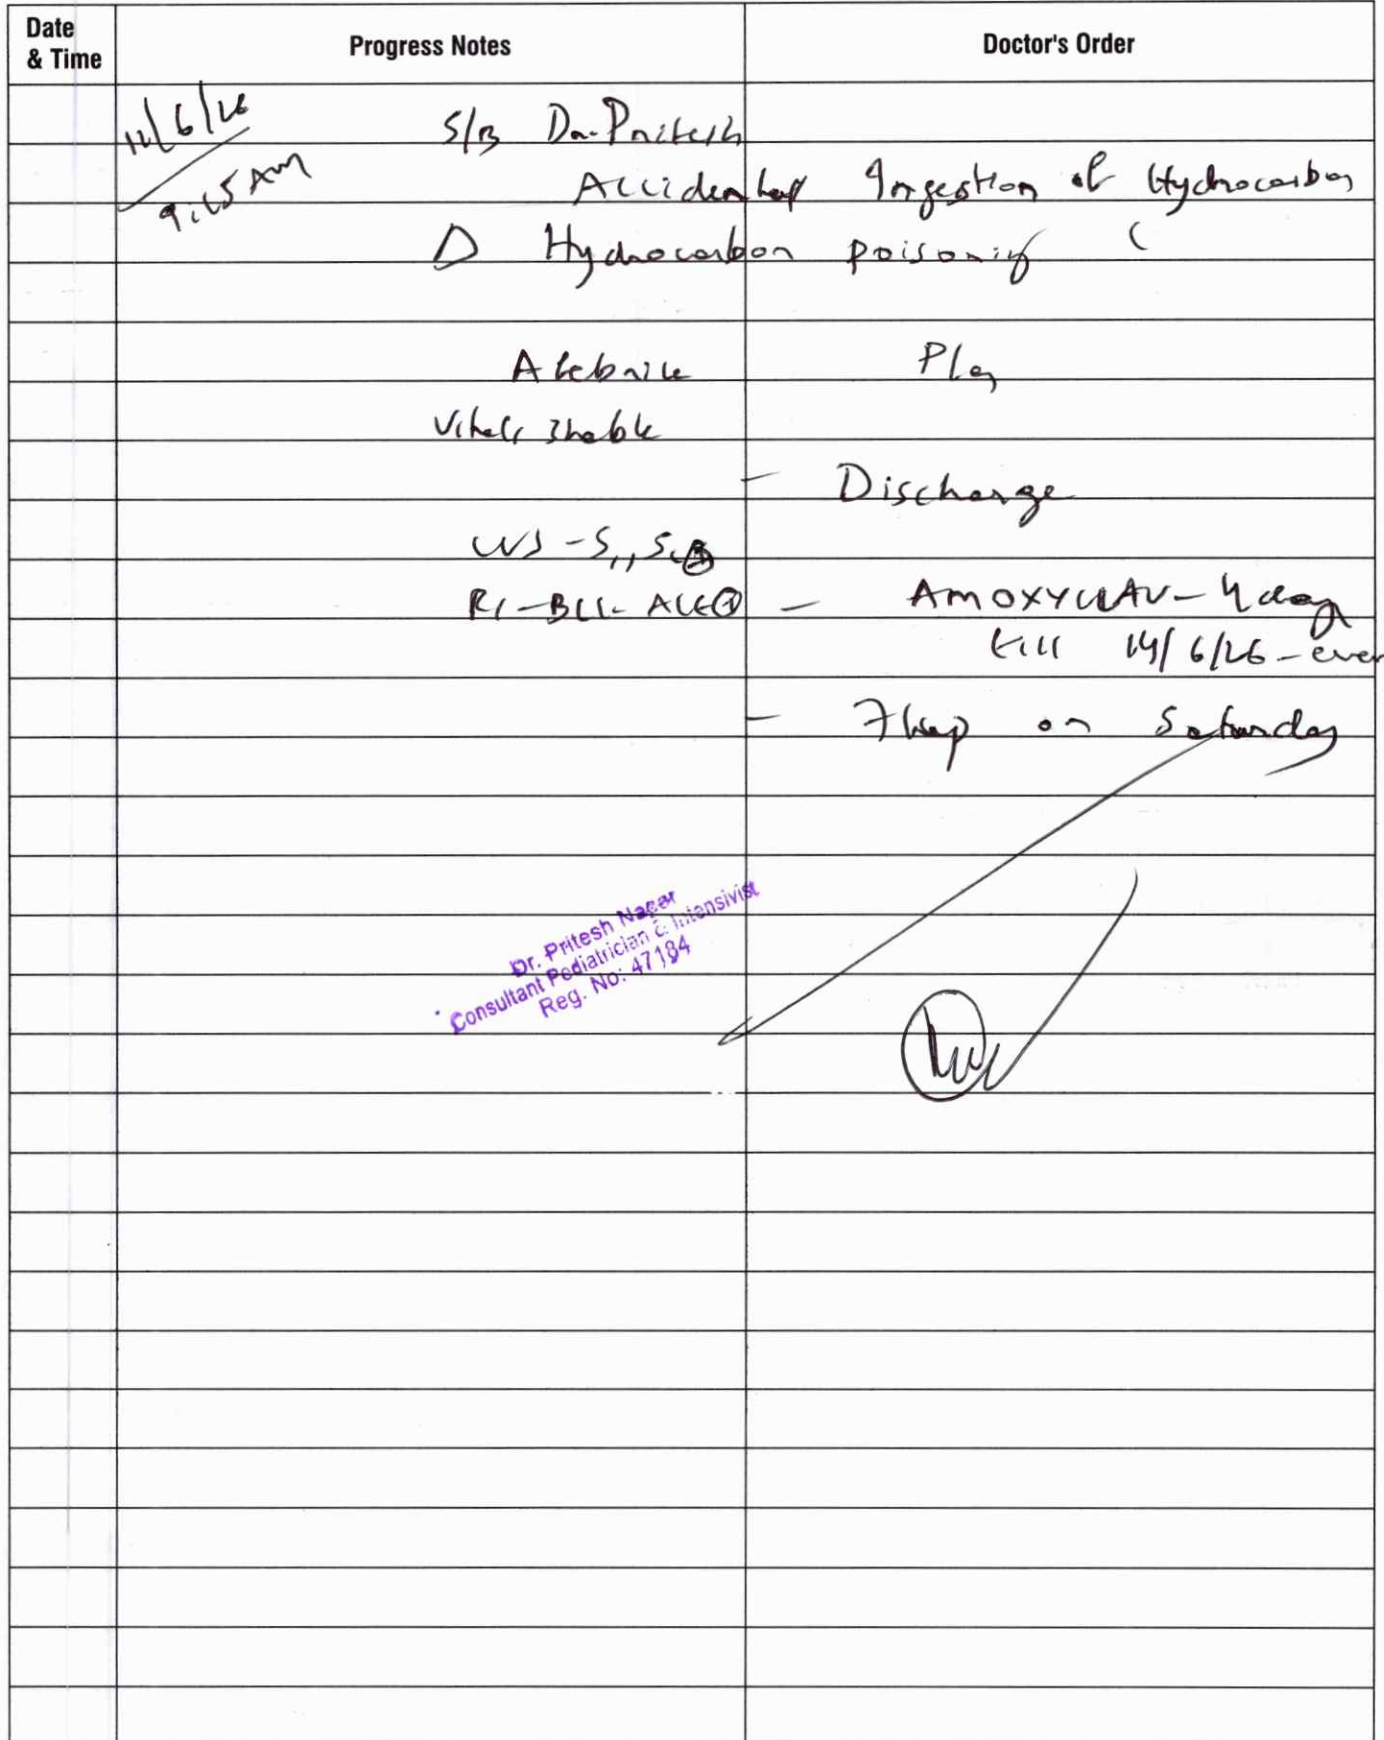 Date & Time
Progress Notes
Doctor's Order
/6/26
S/B Dr. Pritesh
9:15 AM
Accidental Ingestion of Hydrocarbon
Δ Hydrocarbon poisoning (
Afebrile
Plan
Vitals Stable
- Discharge
CVS - S₁, S₂
RS - B/L - AE⊕
- AMOXYCLAV - 4 day
till 14/6/26 - even
- Flwup on Saturday
Dr. Pritesh Nagar
Consultant Pediatrician & Intensivist
Reg. No: 47184